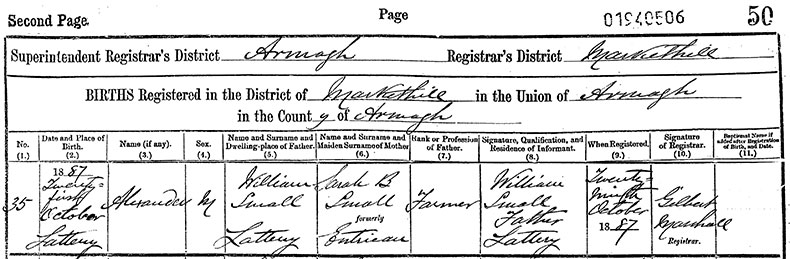 Second Page.
Page
01940506
50
Superintendent Registrar's District Armagh Registrar's District Markethill
BIRTHS Registered in the District of Markethill in the Union of Armagh
in the County of Armagh
No.
(1.)
Date and Place of
Birth.
(2.)
Name (if any).
(3.)
Sex.
(4.)
Name and Surname and
Dwelling-place of Father.
(5.)
Name and Surname and
Maiden Surname of Mother
(6.)
Rank or Profession
of Father.
(7.)
Signature, Qualification, and
Residence of Informant.
(8.)
When Registered.
(9.)
Signature
of Registrar.
(10.)
Baptismal Name if
added after Registration
of Birth, and Date.
(11.)
35
1887
Twenty-
first
October
Lattery
Alexander
M
William
Small
Lattery
Sarah B
Small
formerly
Entrican
Farmer
William
Small
Father
Lattery
Twenty-
ninth
October
1887
Gilbert
Marshall
Registrar.